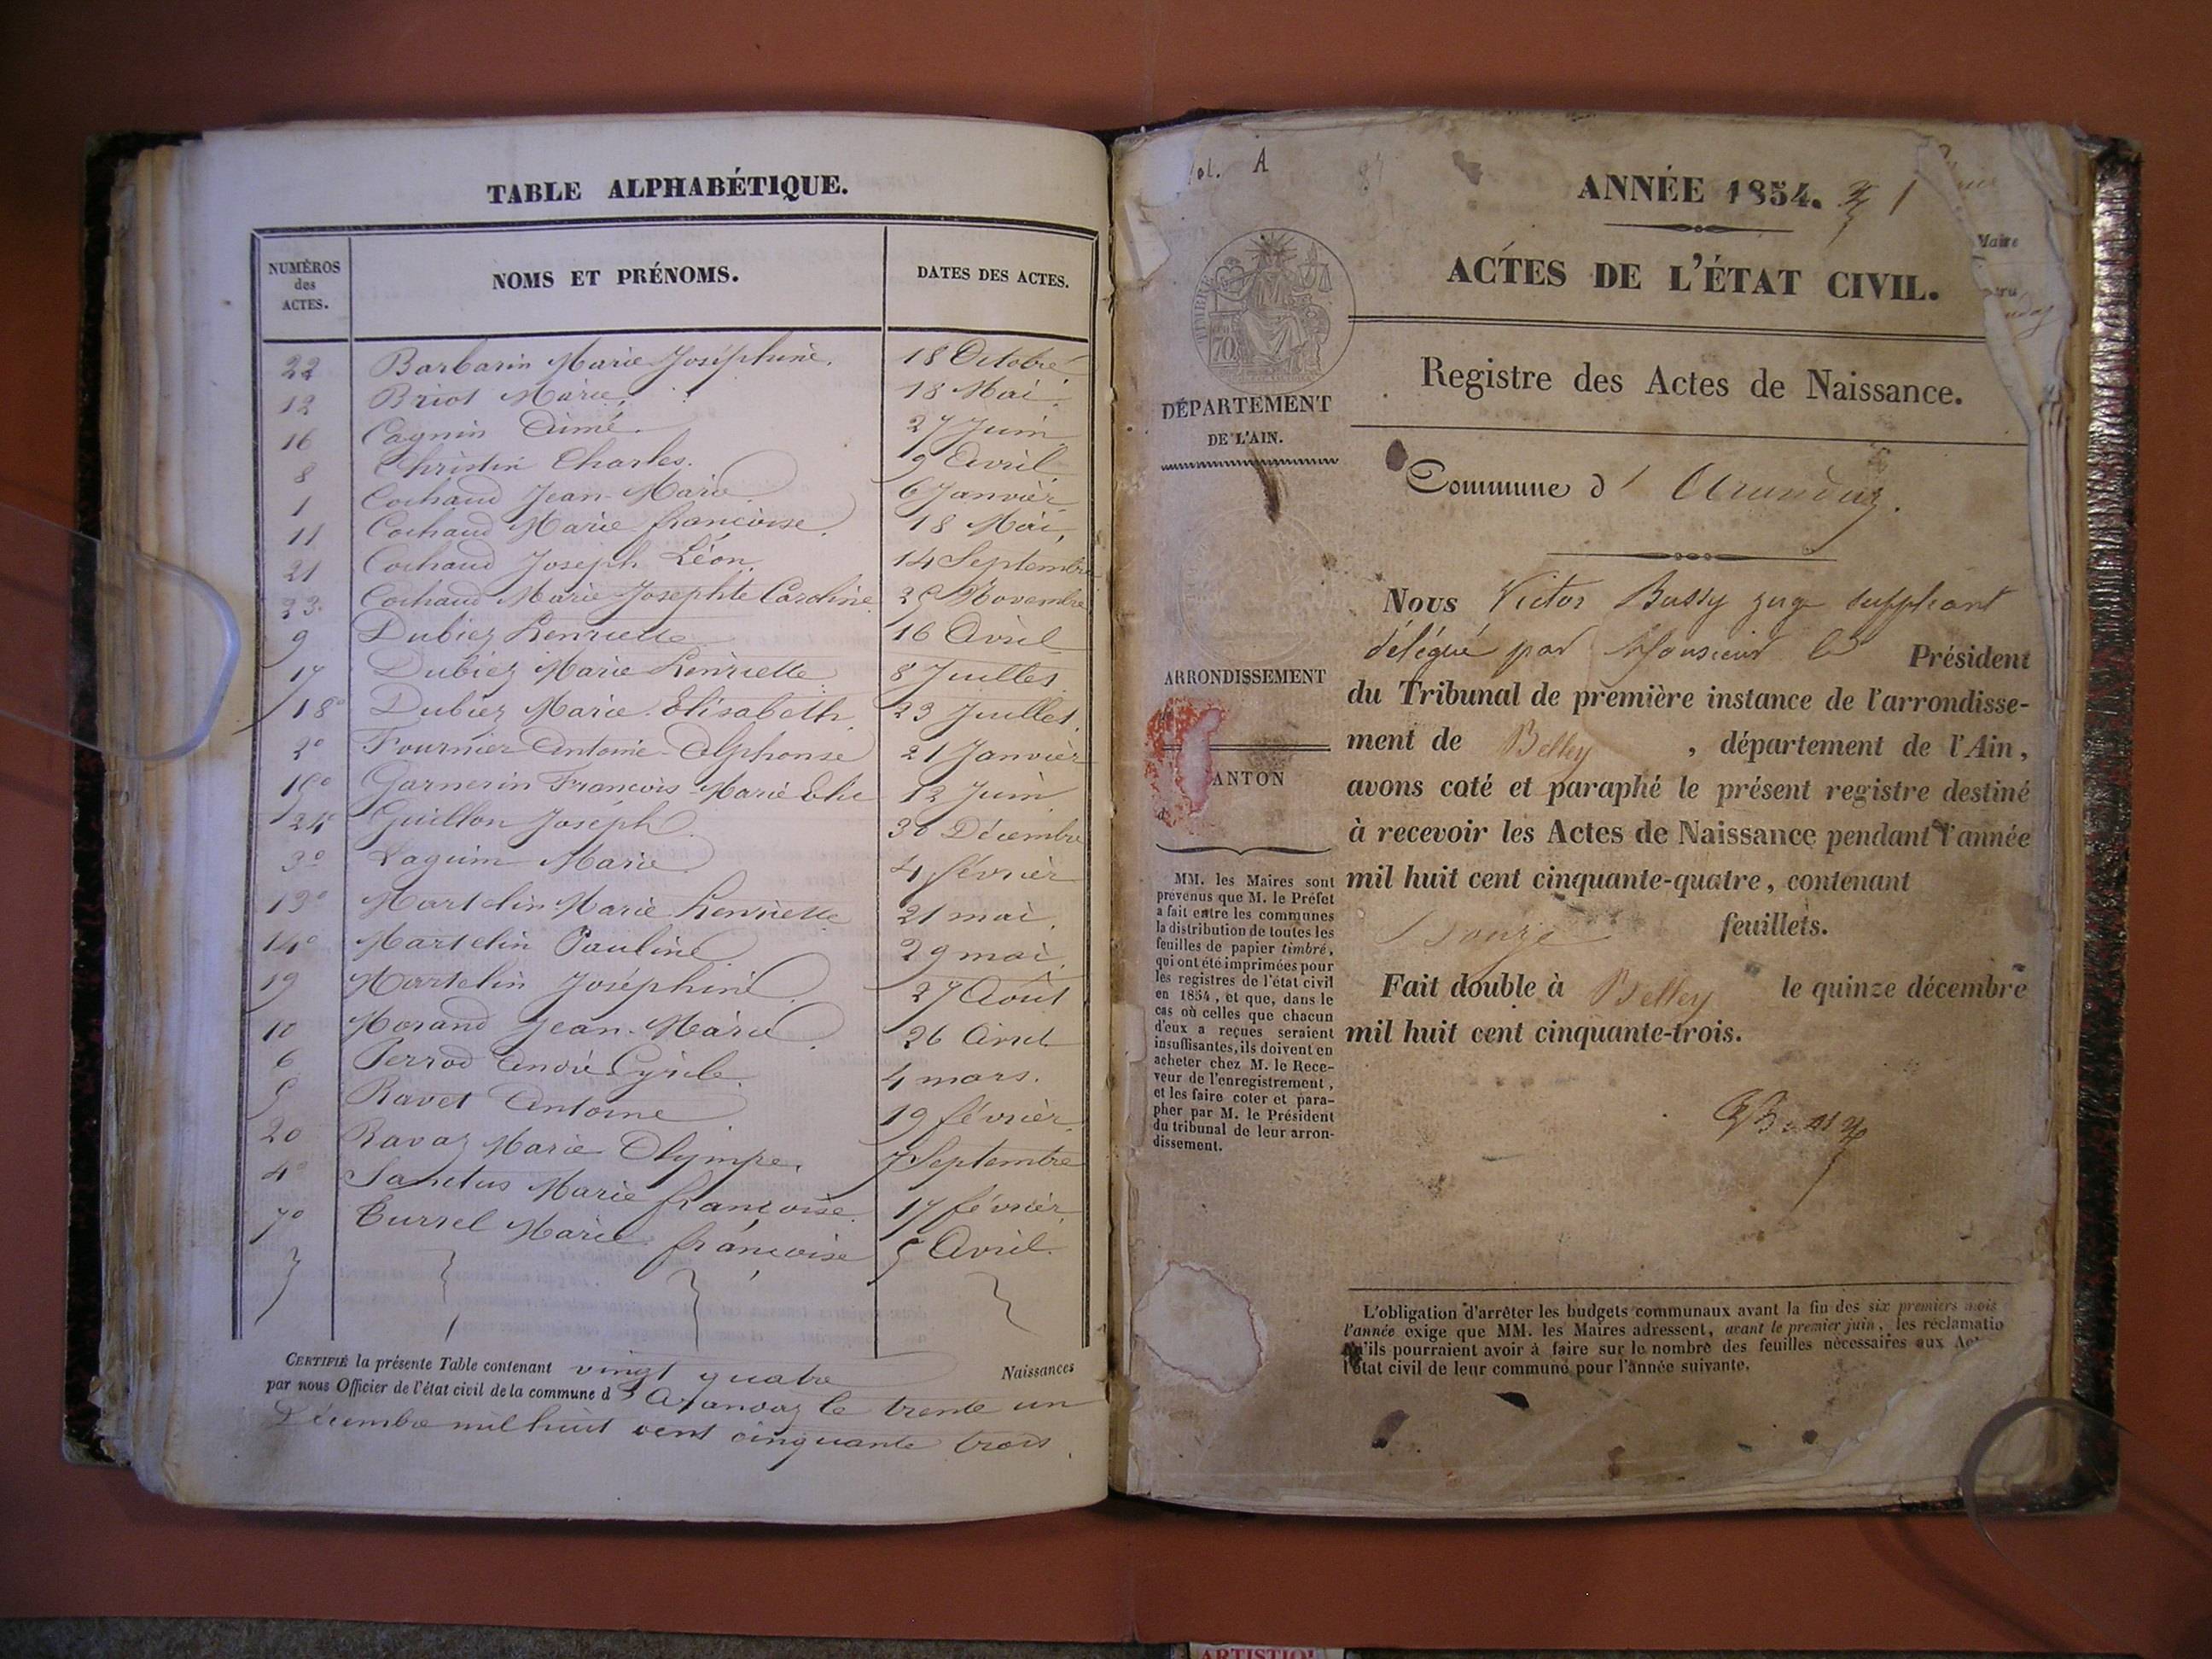 TABLE ALPHABÉTIQUE.
NUMÉROS des ACTES. NOMS ET PRÉNOMS. DATES DES ACTES.
22 Barbarin Marie Joséphine. 18 Octobre
12 Briot Marie. 18 Mai.
16 Cagnin Aimé. 27 Juin
8 Christin Charles. 9 Avril
1 Cochaud Jean-Marie. 6 Janvier
11 Cochaud Marie françoise. 18 Mai,
21 Cochaud Joseph Léon. 14 Septembre
23 Cochaud Marie Josephte Caroline Novembre
9 Dubiez henriette 16 Avril
17 Dubiez Marie henriette 8 Juillet
18° Dubiez Marie Elisabeth 23 Juillet
2° Fournier Antoine Alphonse 21 Janvier
15° Garnerin François Marie 12 Juin
24° Guillon Joseph 30 Décembre
3° Laguin Marie 4 février
13° Martelin Marie henriette 21 mai.
14° Martelin Pauline 29 mai.
19 Martelin Joséphine 27 Août
10 Morand Jean-Marie. 26 Avril
6 Perrod André Cyrile. 4 mars.
5 Ravet Antoine 19 février.
20 Ravaz Marie Olympe. 7 Septembre
4° Sanctus Marie françoise. 17 février
7° Turrel Marie françoise 5 Avril.
CERTIFIÉ la présente Table contenant vingt quatre Naissances
par nous Officier de l'état civil de la commune d' Arandaz le trente un
Décembre mil huit cent cinquante trois.
Vol. A
ANNÉE 1854. 1
Maire
ACTES DE L'ÉTAT CIVIL.
Registre des Actes de Naissance.
DÉPARTEMENT
DE L'AIN.
Commune d' Arandaz.
Nous Victor Bussy juge suppléant
délégué par Monsieur le Président
du Tribunal de première instance de l'arrondisse-
ment de Belley, département de l'Ain,
avons coté et paraphé le présent registre destiné
à recevoir les Actes de Naissance pendant l'année
mil huit cent cinquante-quatre, contenant
Douze feuillets.
Fait double à Belley le quinze décembre
mil huit cent cinquante-trois.
ARRONDISSEMENT
ANTON
MM. les Maires sont
prévenus que M. le Préfet
a fait entre les communes
la distribution de toutes les
feuilles de papier timbré,
qui ont été imprimées pour
les registres de l'état civil
en 1854, et que, dans le
cas où celles que chacun
d'eux a reçues seraient
insuffisantes, ils doivent en
acheter chez M. le Rece-
veur de l'enregistrement,
et les faire coter et para-
pher par M. le Président
du tribunal de leur arron-
dissement.
L'obligation d'arrêter les budgets communaux avant la fin des six premiers mois
l'année exige que MM. les Maires adressent, avant le premier juin, les réclamatio
qu'ils pourraient avoir à faire sur le nombre des feuilles nécessaires aux Ac
l'état civil de leur commune pour l'année suivante.